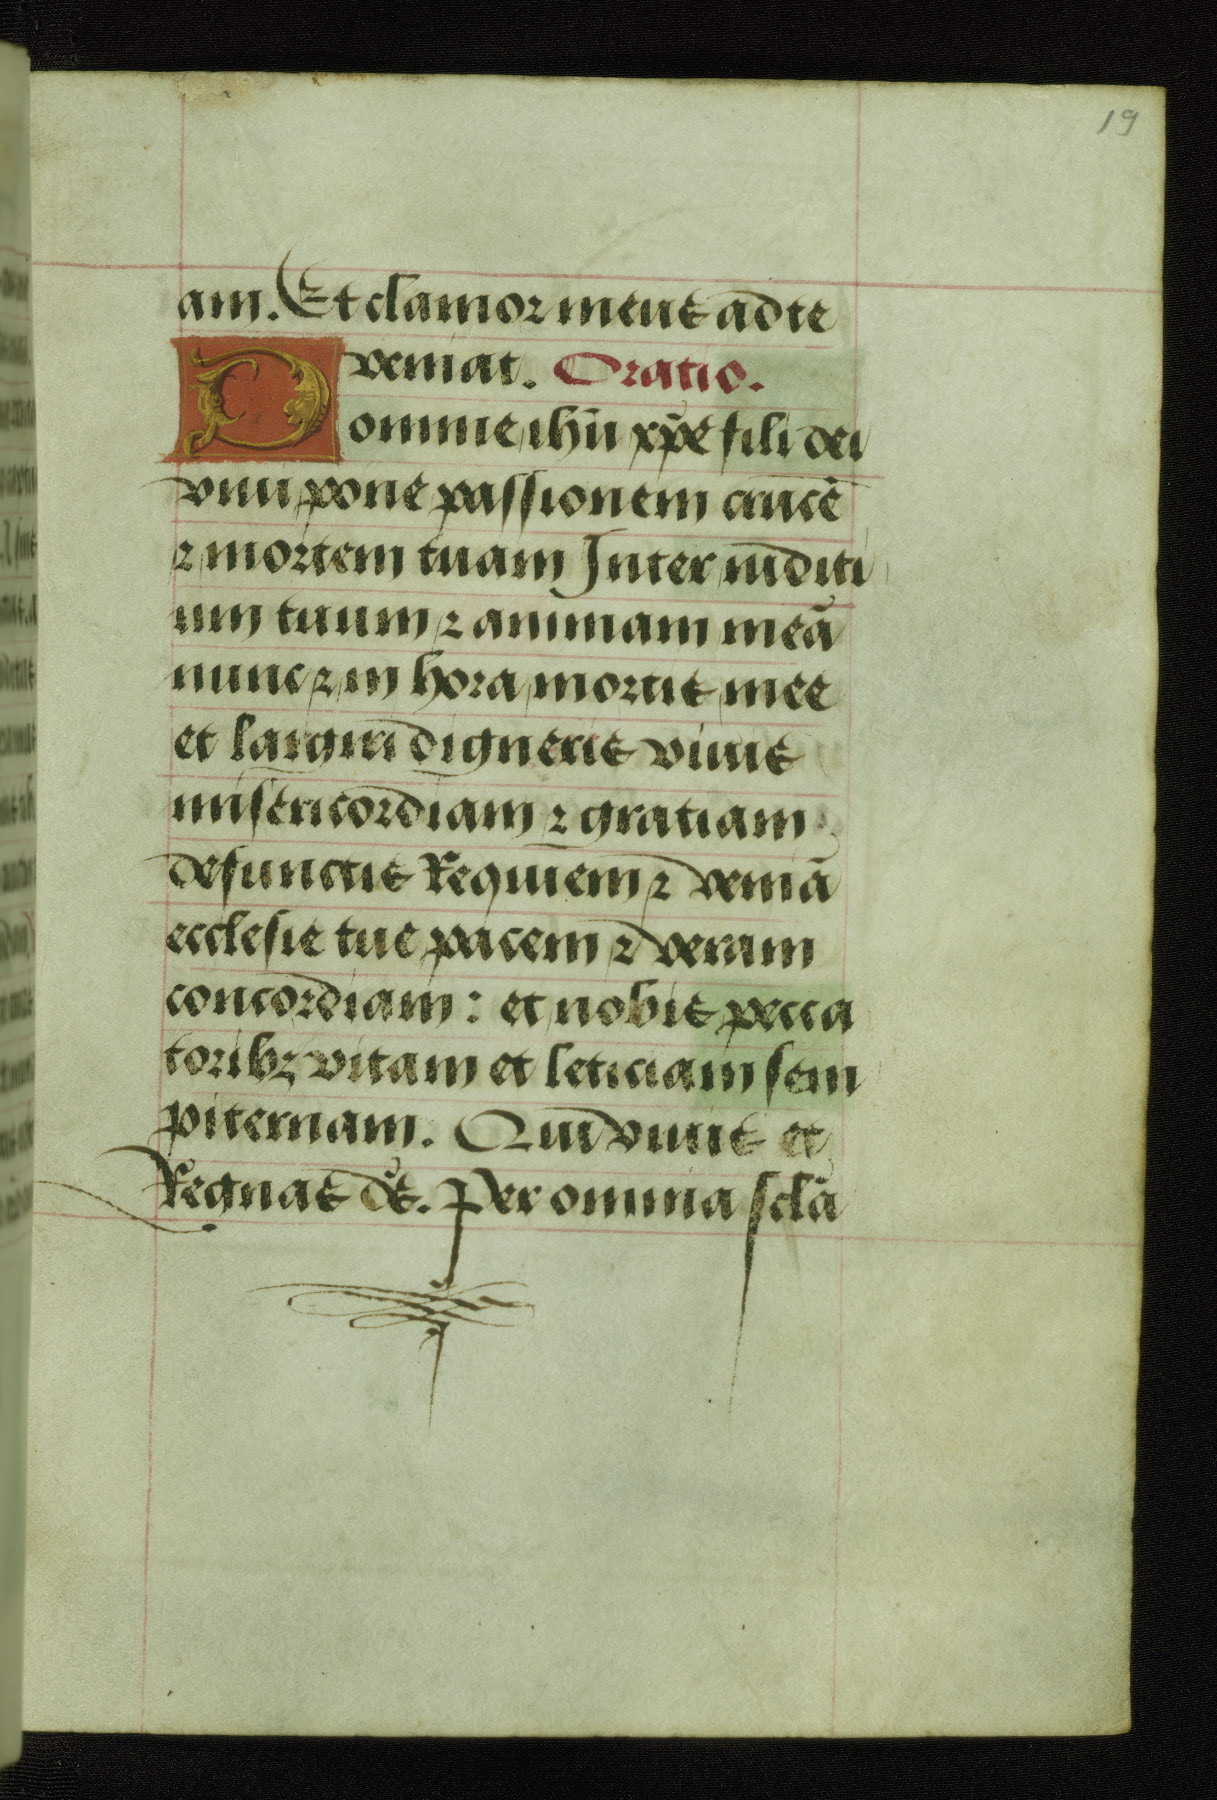 19
am. Et clamor meus ad te
veniat. Oratio.
Domine ihū xpē fili dei
viui pone passionem crucē
⁊ mortem tuam Inter iudici
um tuum ⁊ animam meā
nunc ⁊ in hora mortis mee
et largiri digneris viuis
misericordiam ⁊ gratiam
defunctis Requiem ⁊ veniā
ecclesie tue pacem ⁊ veram
concordiam: et nobis pecca
toribꝫ vitam et leticiam sem
piternam. Qui viuis et
Regnas dꝰ. Per omnia sclā